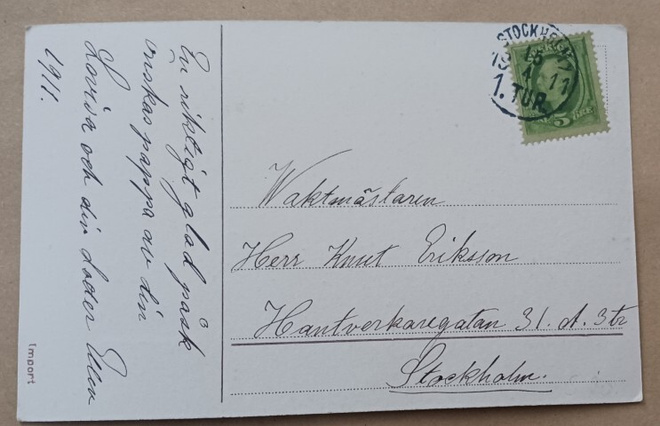 En riktigt glad påsk
önskas pappa av din
Lovisa och din doder Ellen
1911.
Import
STOCKHOLM
15 4 11
1. TUR.
5 ÖRE
Waktmästaren
Herr Knut Eriksson
Hantverkaregatan 31. A. 3 tr
Stockholm.